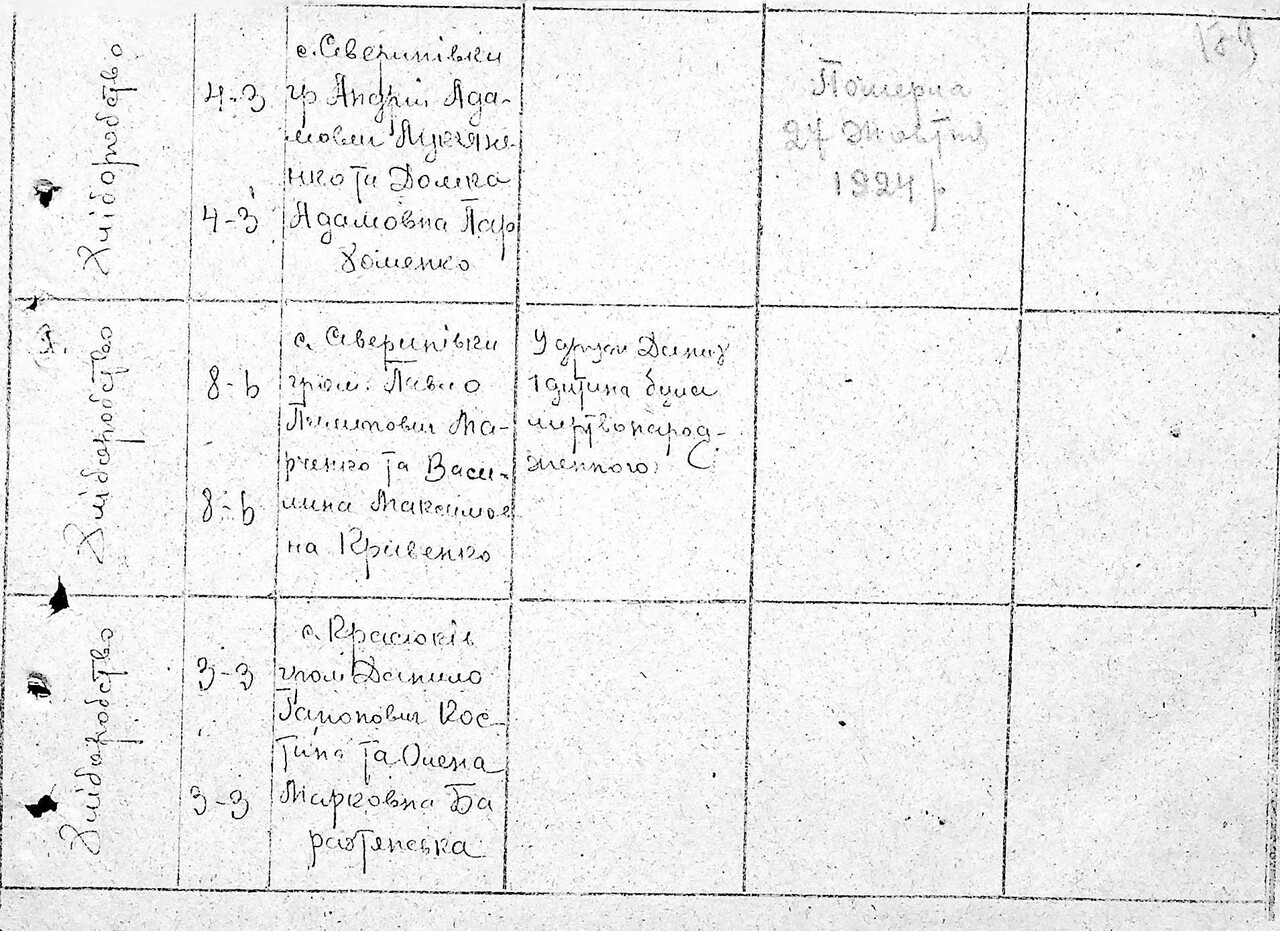 Хліборобство
4-3
4-3
с. Северинівки
гр Андрій Ада-
мович Лукяне-
нко та Домка
Адамовна Пар
хоменко
Померла
27 Жовтня
1924 р
Хліборобство
8-6
8-6
с. Северинівки
гром. Павло
Пилипович Ма-
рченко та Васи-
лина Максимов
на Крівенко
У друзи Даниу
1 дитина була
мертвонарод-
женного
Хліборобство
3-3
3-3
с. Красюків
гром Данило
Гапонович Кос-
тина та Олена
Марковна Ба
рахтянська